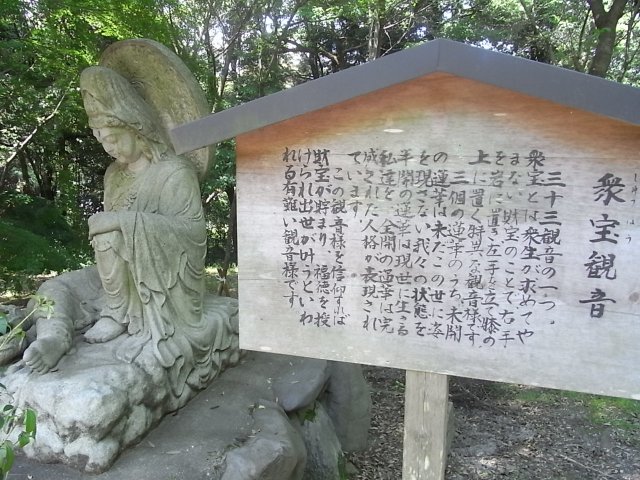 衆宝観音
しゅうほう
三十三観音の一つ。
衆宝とは衆生が求めてや
まない財宝のことで右手
を岩に置き左手を立て膝の
上に置く特異な観音様です
三個の蓮華のうち、未開
の蓮華は未だこの世に姿
を現さない我々の状態を
半開の蓮華は現世に生きる
私達を、全開の蓮華は完
成された人格が表現され
ています。
この観音様を信仰すれば
財宝が貯まり、福徳を授
けられ出世が叶うといわ
れる有難い観音様です